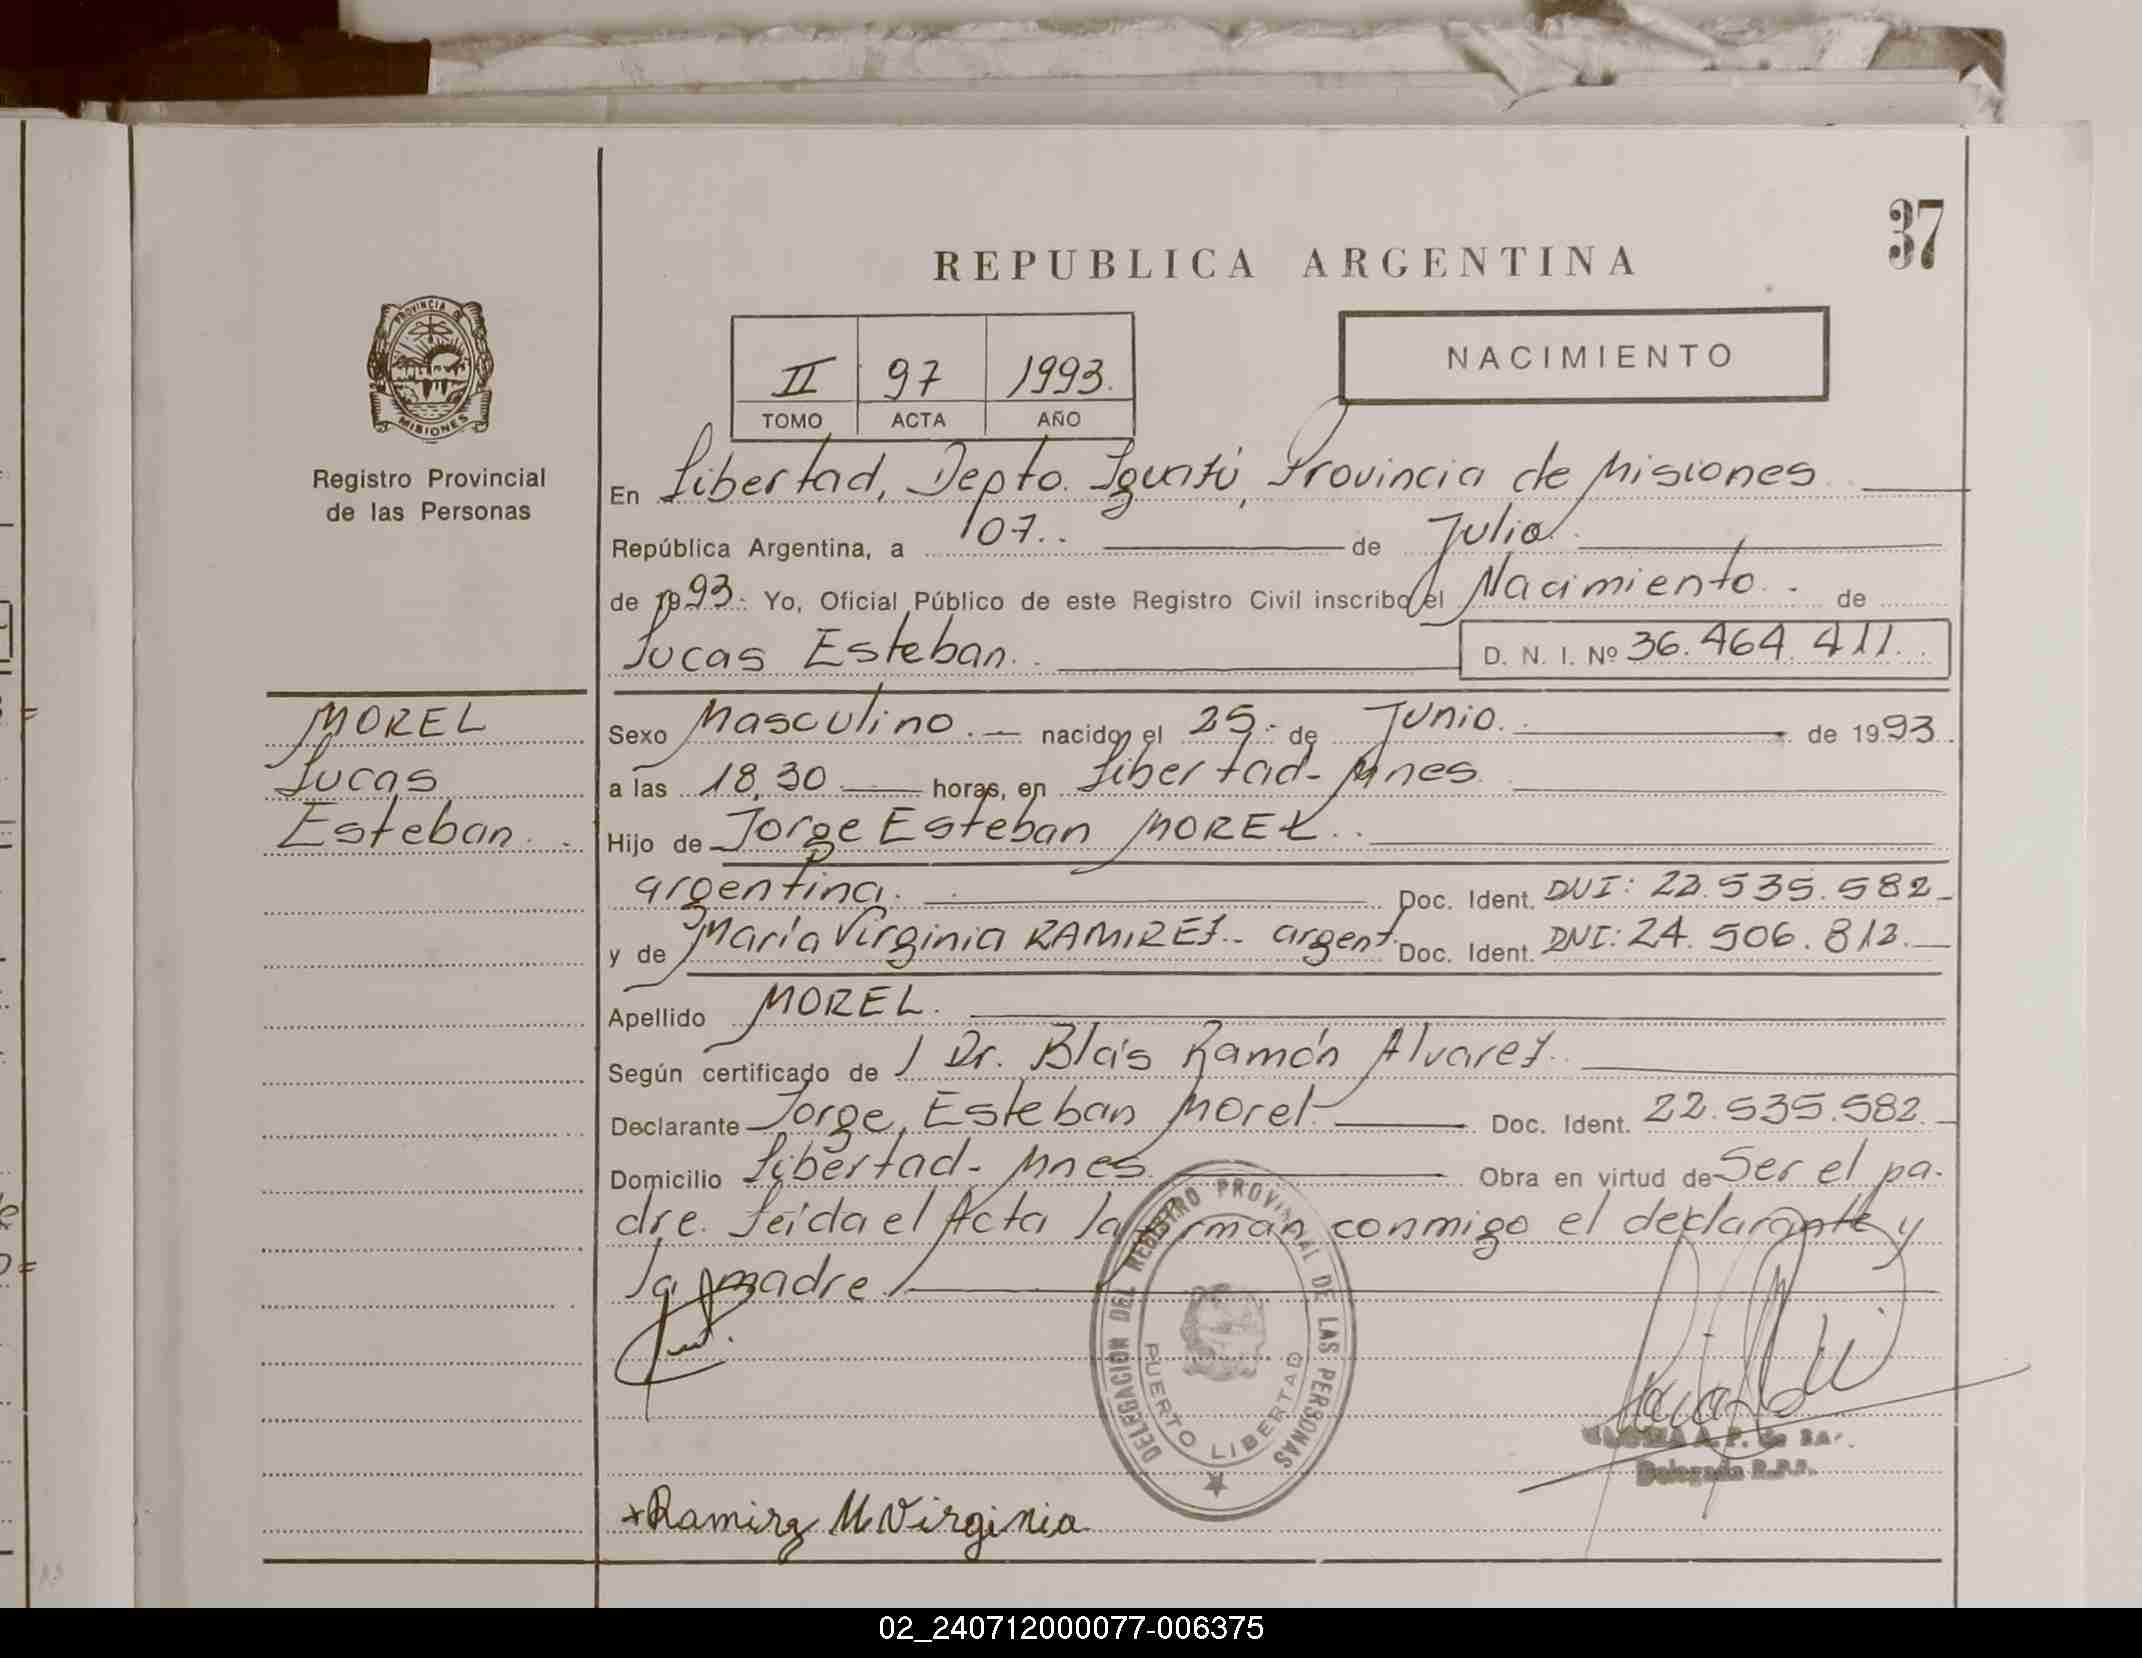 37
REPUBLICA ARGENTINA
PROVINCIA DE
MISIONES
Registro Provincial
de las Personas
II 97 1993.
TOMO ACTA AÑO
NACIMIENTO
En Libertad, Depto. Iguazú, Provincia de Misiones
República Argentina, a 07.. de Julio
de 1993. Yo, Oficial Público de este Registro Civil inscribo el Nacimiento.- de
Lucas Esteban.. D. N. I. Nº 36.464.411.
MOREL
Lucas
Esteban..
Sexo Masculino.— nacido el 25.- de Junio. de 1993.
a las 18,30 horas, en Libertad- Mnes
Hijo de Jorge Esteban MOREL..
argentina. Doc. Ident. DNI: 22.535.582-
y de María Virginia RAMIREZ.- argent. Doc. Ident. DNI: 24.506.813.—
Apellido MOREL.
Según certificado de / Dr. Blás Ramón Alvarez.
Declarante Jorge Esteban Morel- Doc. Ident. 22.535.582.-
Domicilio Libertad- Mnes. Obra en virtud de Ser el pa-
dre. Leída el Acta la firman conmigo el declarante y
la madre
DELEGACION DEL REGISTRO PROVINCIAL DE LAS PERSONAS
PUERTO LIBERTAD
A. P. de
Delegada R.P.P.
Ramirz M Virginia
02_240712000077-006375